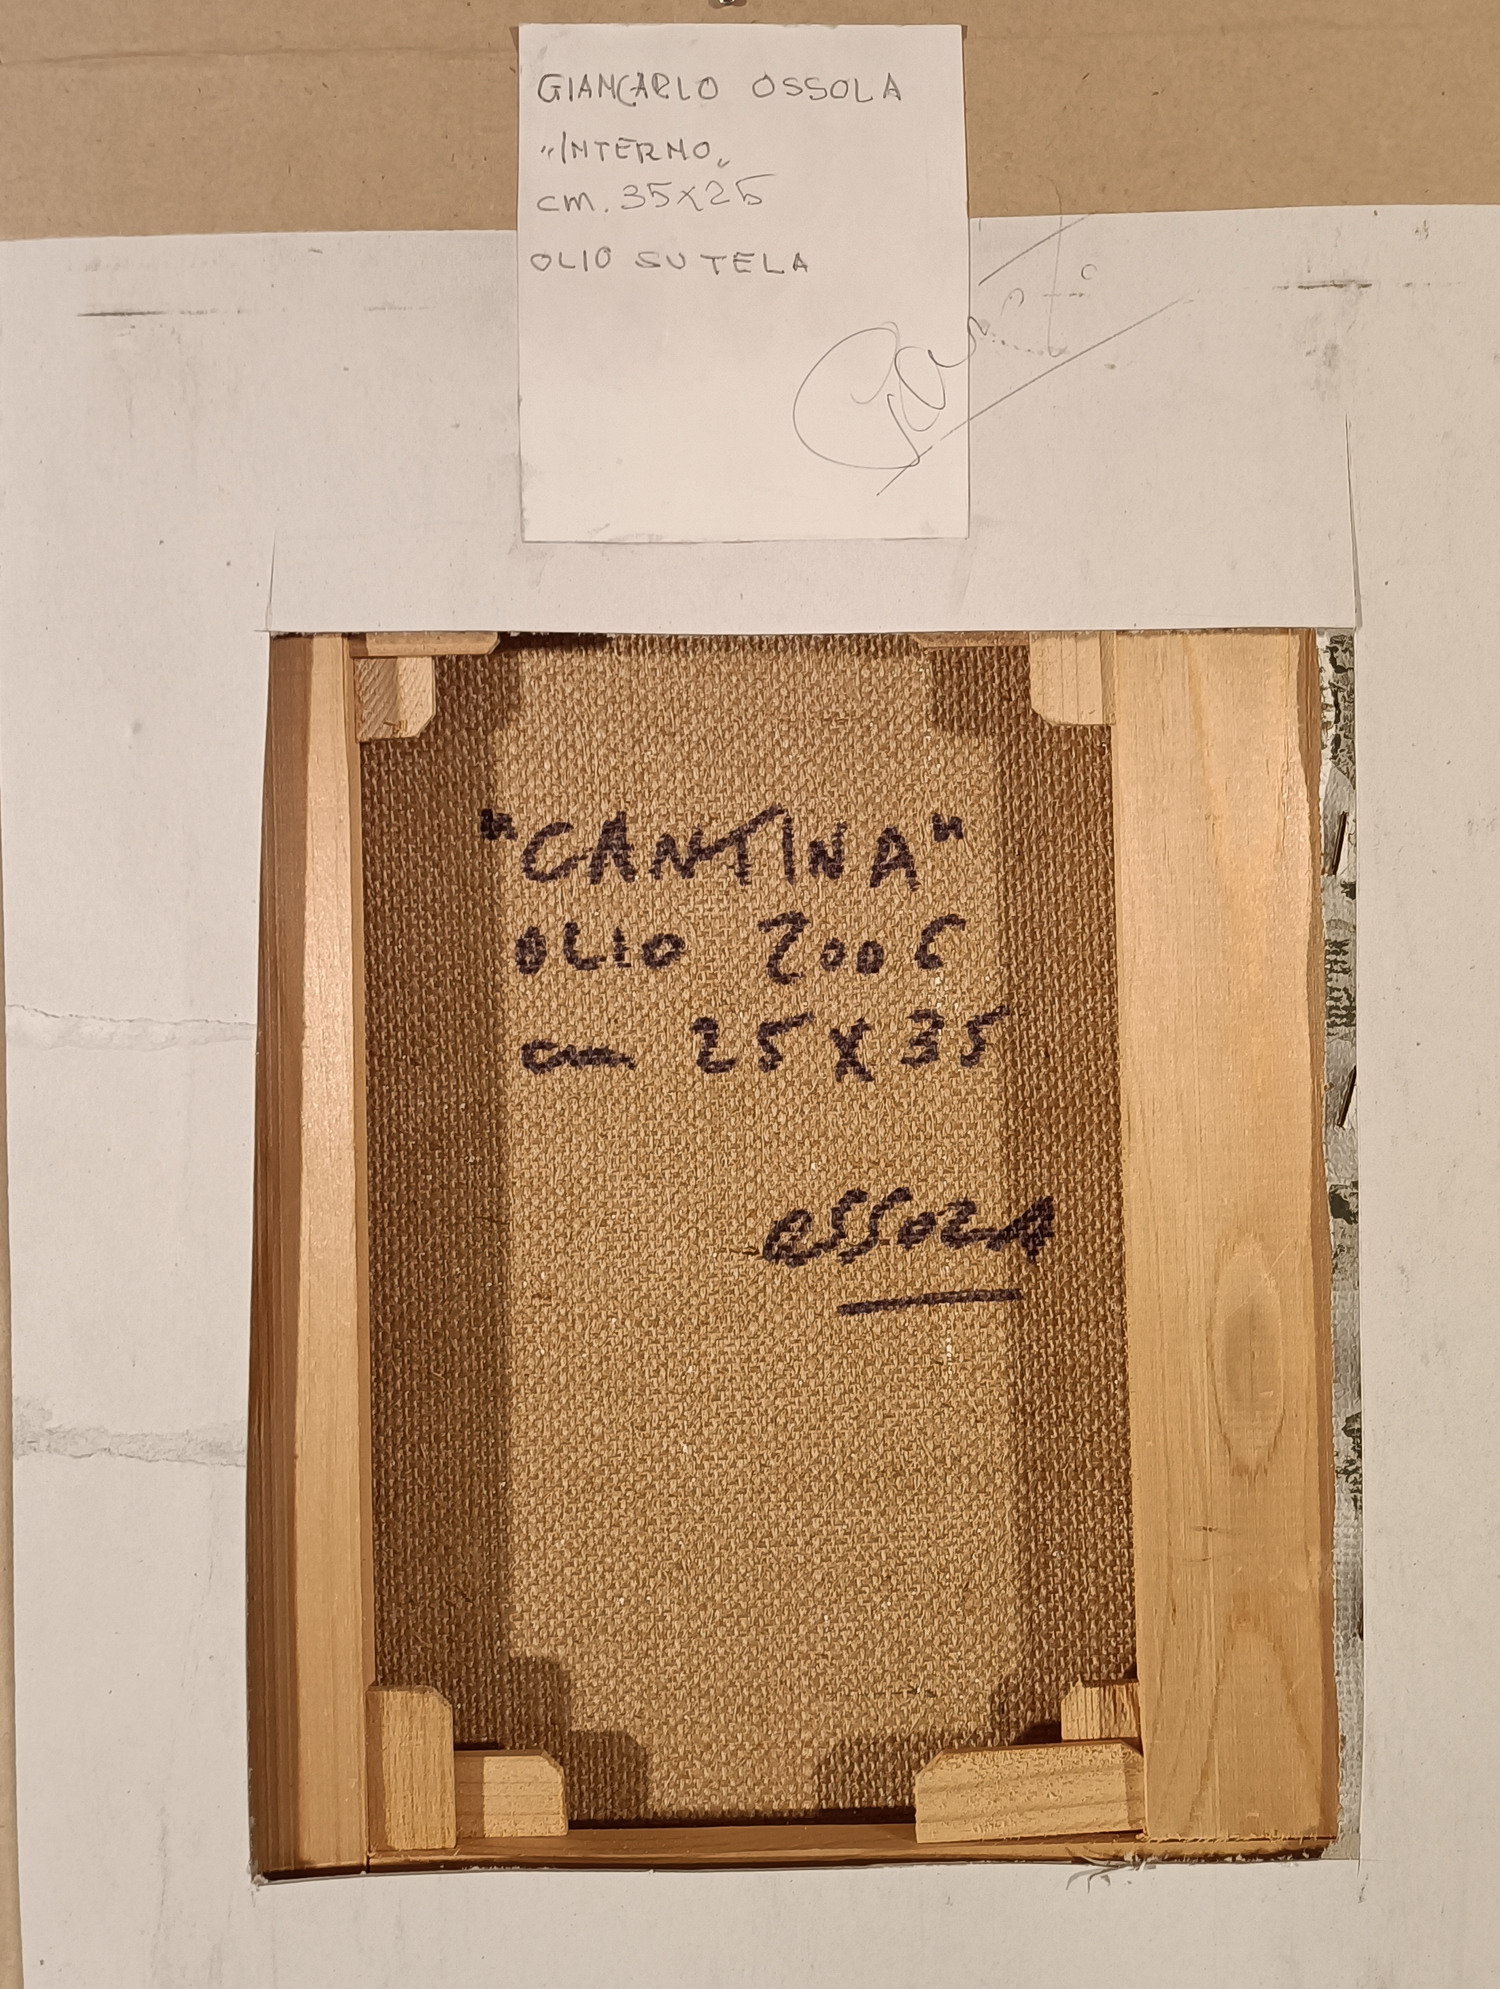 GIANCARLO OSSOLA
"INTERNO"
cm. 35x25
OLIO SU TELA
"CANTINA"
OLIO 2006
cm 25X35
OSSOLA